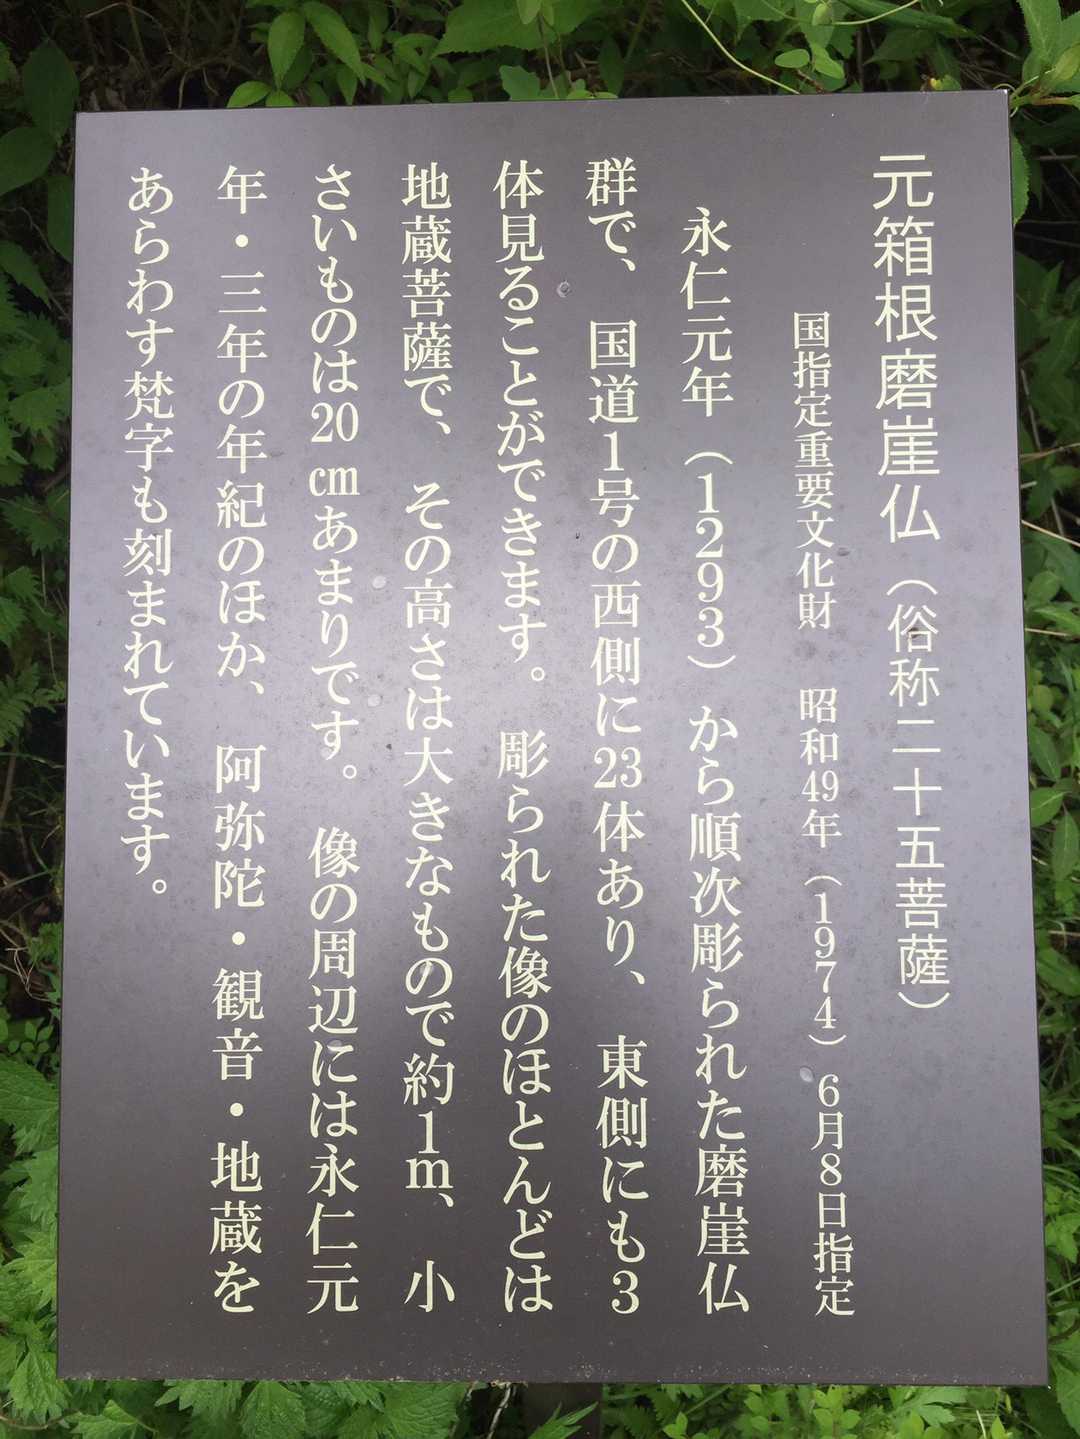 元箱根磨崖仏（俗称二十五菩薩）
国指定重要文化財　昭和49年（1974）6月8日指定
永仁元年（1293）から順次彫られた磨崖仏
群で、国道1号の西側に23体あり、東側にも3
体見ることができます。彫られた像のほとんどは
地蔵菩薩で、その高さは大きなもので約1m、小
さいものは20cmあまりです。像の周辺には永仁元
年・三年の年紀のほか、阿弥陀・観音・地蔵を
あらわす梵字も刻まれています。